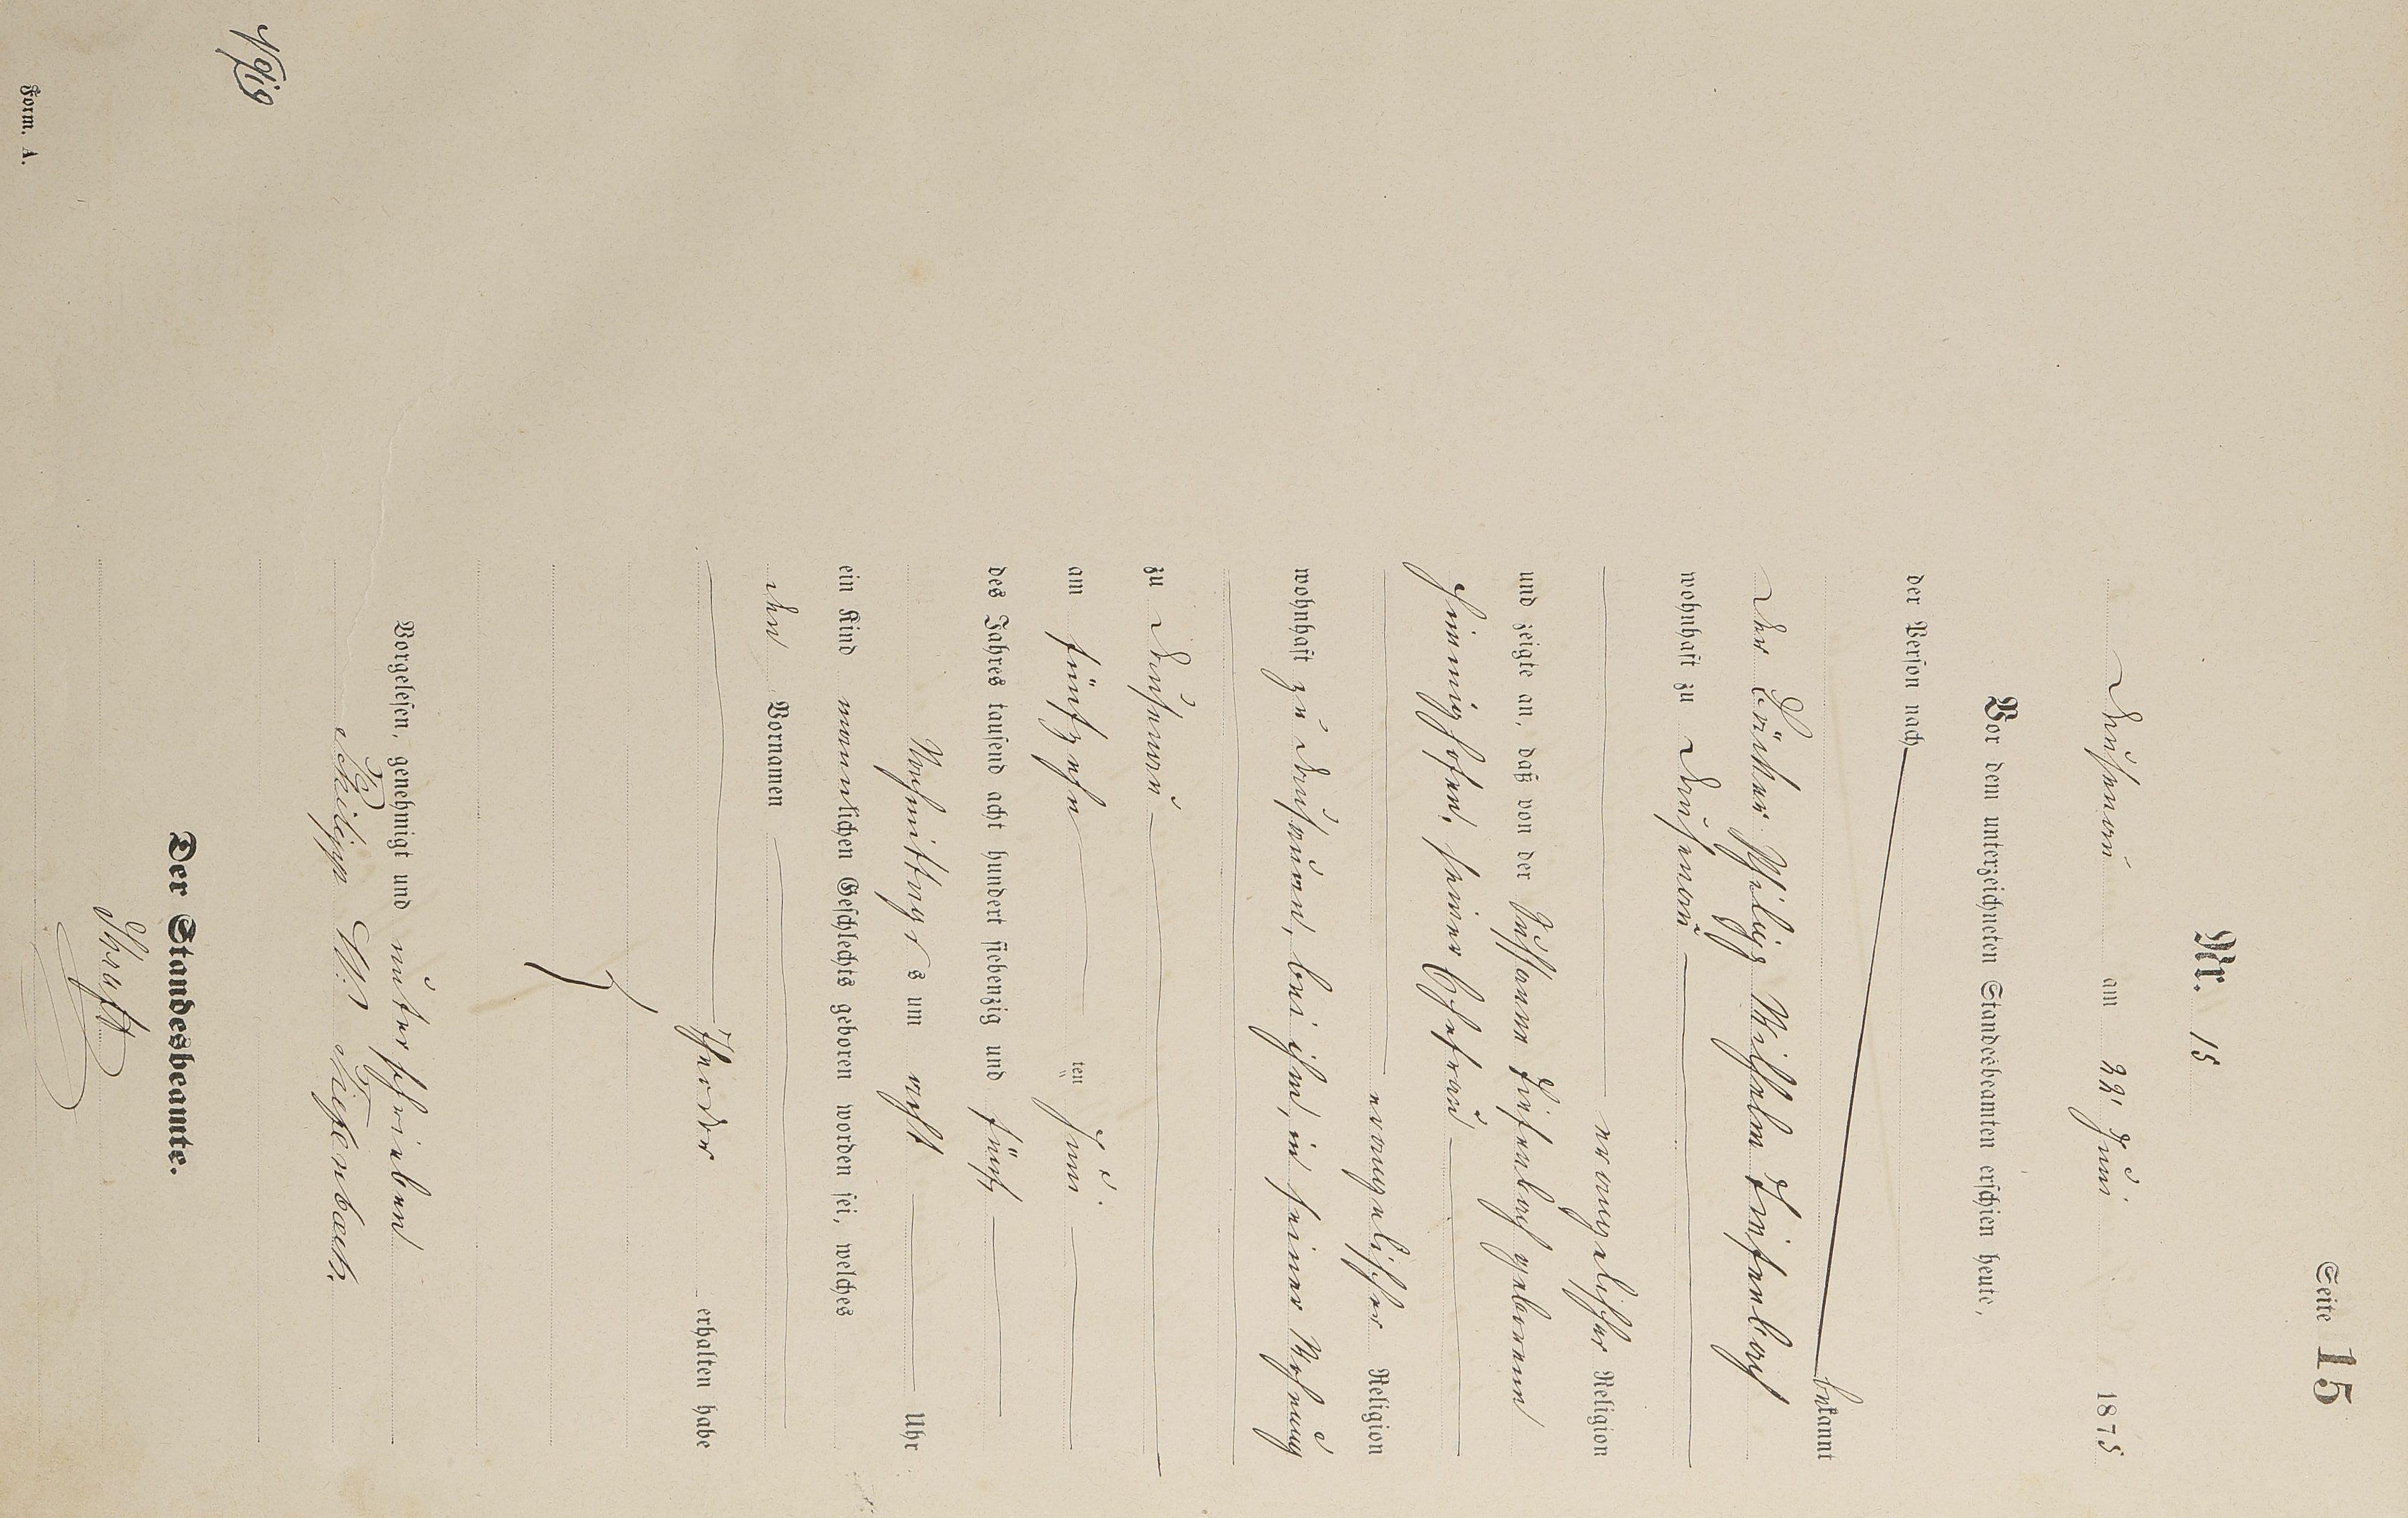 Seite 15
Nr. 15
Dausenau am 22' Juni 1875
Vor dem unterzeichneten Standesbeamten erschien heute,
der Person nach
bekannt
der Küfer Philipp Wilhelm Tiefenbach
wohnhaft zu Dausenau
evangelischer Religion
und zeigte an, daß von der Susanna Tiefenbach geborenen
seiner Ehefrau
evangelischer Religion
wohnhaft zu Dausenau, bei ihm, in seiner Wohnung
zu Dausenau
am fünfzehnten Juni
des Jahres tausend acht hundert siebenzig und fünf
Nachmittags um acht Uhr
ein Kind männlichen Geschlechts geboren worden sei, welches
den Vornamen
Theodor erhalten habe
Vorgelesen, genehmigt und unterschrieben
Philipp W. Tiefenbach.
Der Standesbeamte.
Form. A.